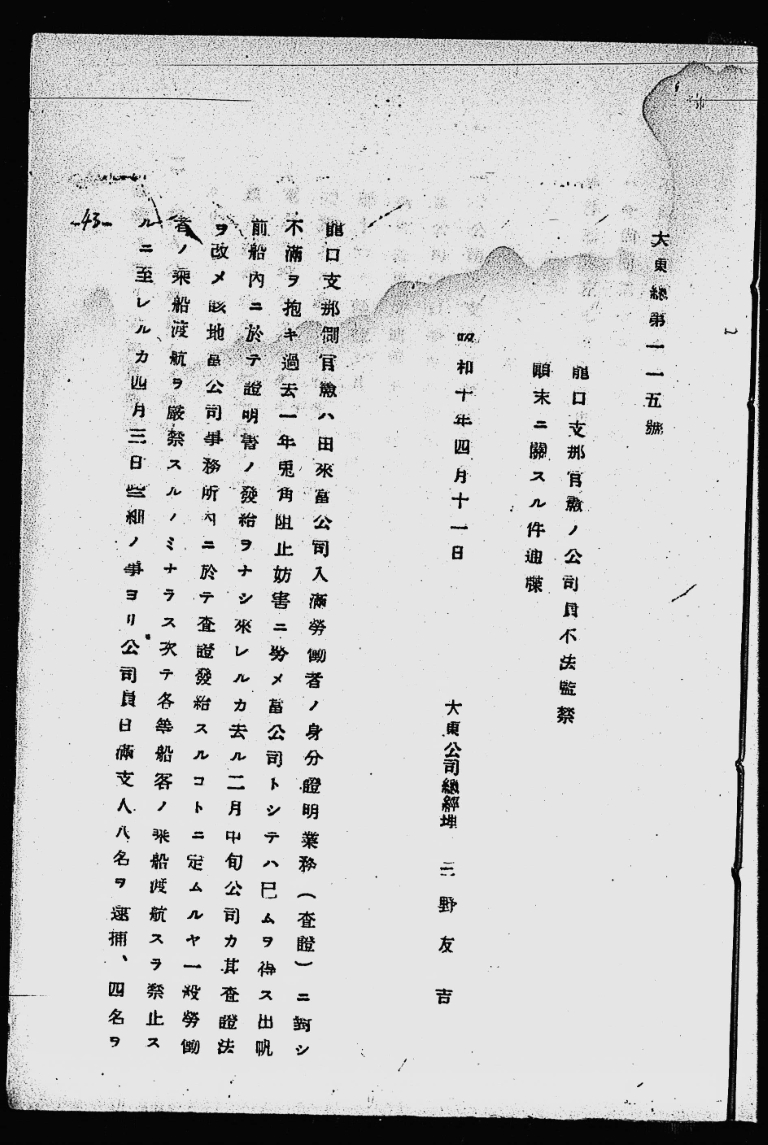 大東總第一一五號
龍口支那官憲ノ公司員不法監禁
顛末ニ關スル件通牒
昭和十年四月十一日
大東公司總經理 三野友吉
龍口支那側官憲ハ由來當公司入滿勞働者ノ身分證明業務（査證）ニ對シ
不滿ヲ抱キ過去一年兎角阻止妨害ニ努メ當公司トシテハ已ムヲ得ス出帆
前船內ニ於テ證明書ノ發給ヲナシ來レルカ去ル二月中旬公司カ其査證法
ヲ改メ該地當公司事務所內ニ於テ査證發給スルコトニ定ムルヤ一般勞働
者ノ乘船渡航ヲ嚴禁スルノミナラス次テ各等船客ノ乘船渡航スラ禁止ス
ルニ至レルカ四月三日些細ノ事ヨリ公司員日滿支人八名ヲ逮捕、四名ヲ
-43-